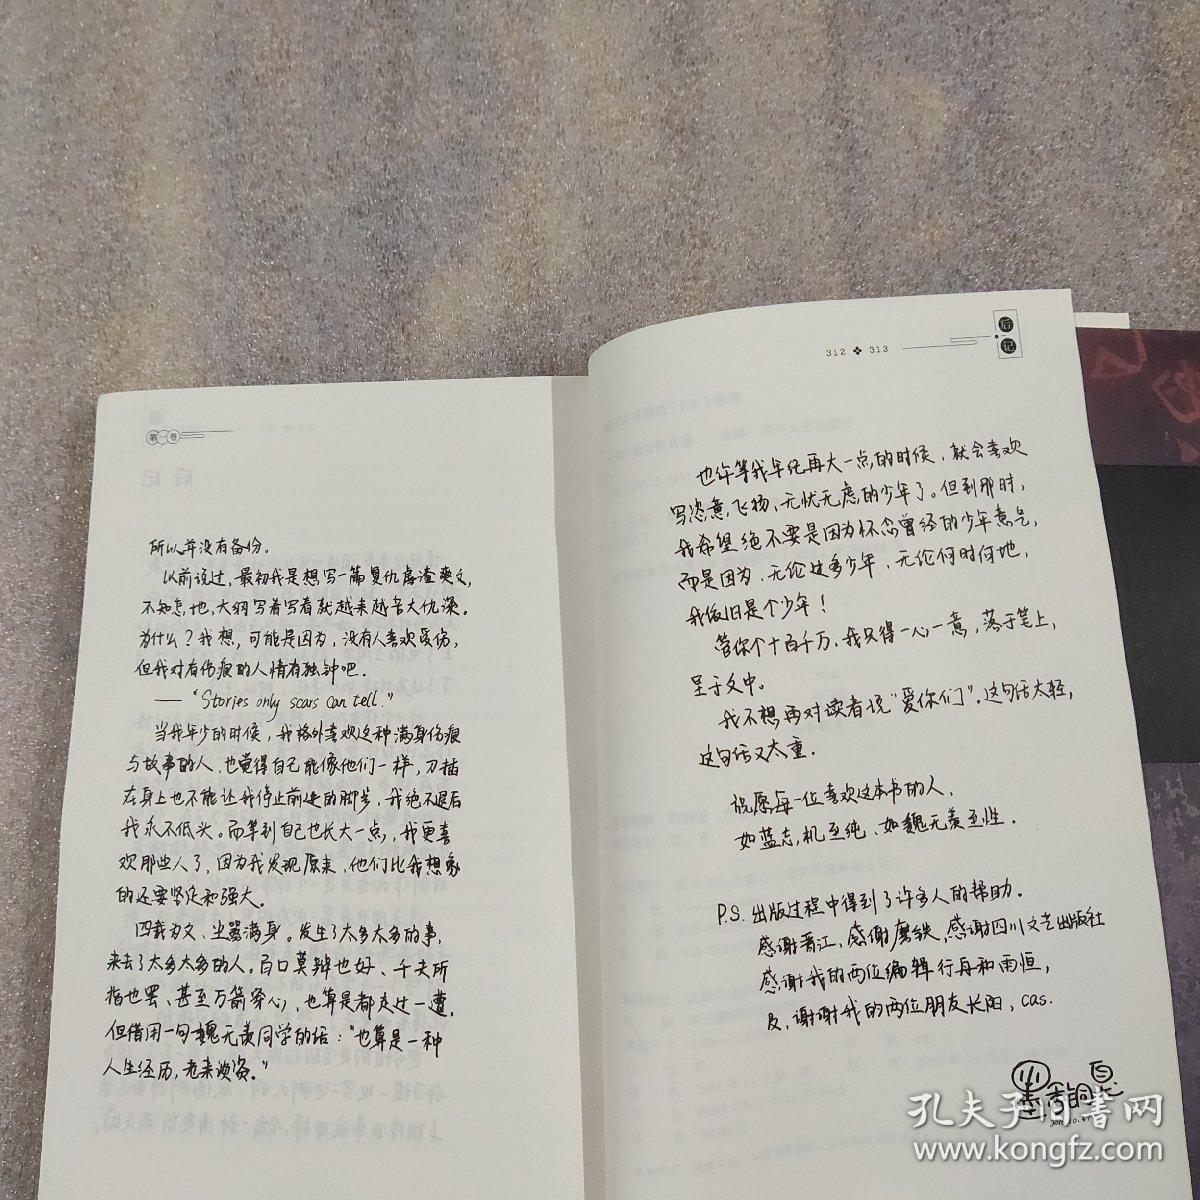 第一卷
所以并没有备份。
以前说过,最初我是想写一篇复仇虐渣爽文,
不知怎地,大纲写着写着就越来越苦大仇深。
为什么?我想,可能是因为,没有人喜欢受伤,
但我对有伤痕的人情有独钟吧。
——“Stories only scars can tell.”
当我年少的时候,我格外喜欢这种满身伤痕
与故事的人,也觉得自己能像他们一样,刀插
在身上也不能让我停止前进的脚步,我绝不退后
我永不低头。而等到自己也长大一点,我更喜
欢那些人了,因为我发现原来,他们比我想象
的还要坚定和强大。
四载为文、尘嚣满身。发生了太多太多的事,
来去了太多太多的人。百口莫辩也好、千夫所
指也罢、甚至万箭穿心,也算是都走过一遭,
但借用一句魏无羡同学的话:“也算是一种
人生经历,老来谈资。”
312 ❖ 313
后记
也许等我年纪再大一点的时候,就会喜欢
写恣意飞扬、无忧无虑的少年了。但到那时,
我希望绝不要是因为怀念曾经的少年意气,
而是因为,无论过多少年,无论何时何地,
我依旧是个少年!
管你个十百千万,我只得一心一意,落于笔上,
呈于文中。
我不想再对读者说“爱你们”。这句话太轻,
这句话又太重.
祝愿每一位喜欢这本书的人,
如蓝忘机至纯、如魏无羡至性.
P.S. 出版过程中得到了许多人的帮助.
感谢晋江,感谢磨铁,感谢四川文艺出版社
感谢我的两位编辑行舟和雨恒,
及,谢谢我的两位朋友长阳,cas.
墨香铜臭
孔夫子旧书网
www.kongfz.com